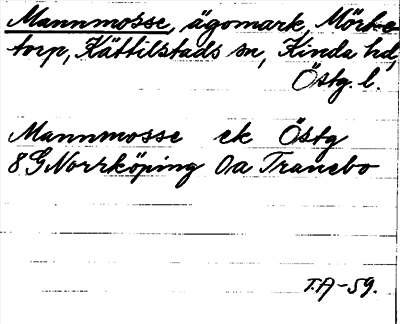 Mannmosse, ägomark Mörke-
torp, Kättilstads sn, Kinda hd,
Östg. l.
Mannmosse ek Östg
8G Norrköping 0a Tranebo
T.A-59.